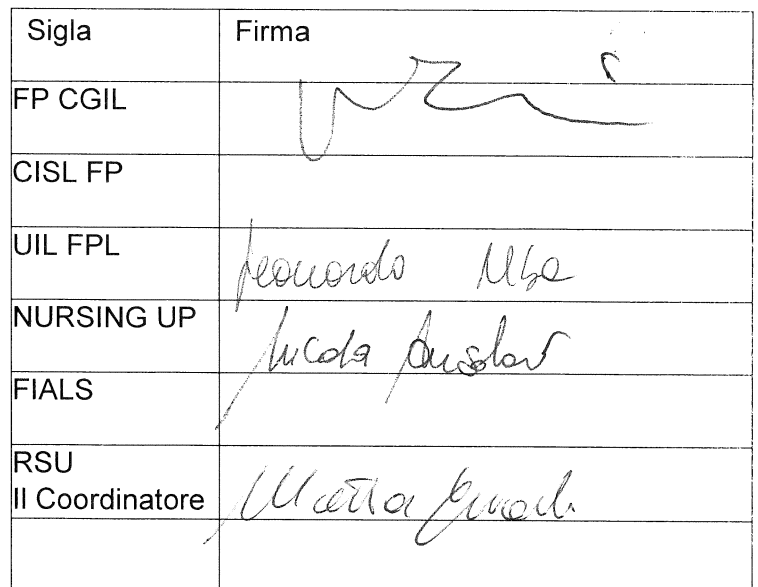 Sigla Firma
FP CGIL
CISL FP
UIL FPL Leonardo
NURSING UP Nicola
FIALS
RSU
Il Coordinatore Mattia